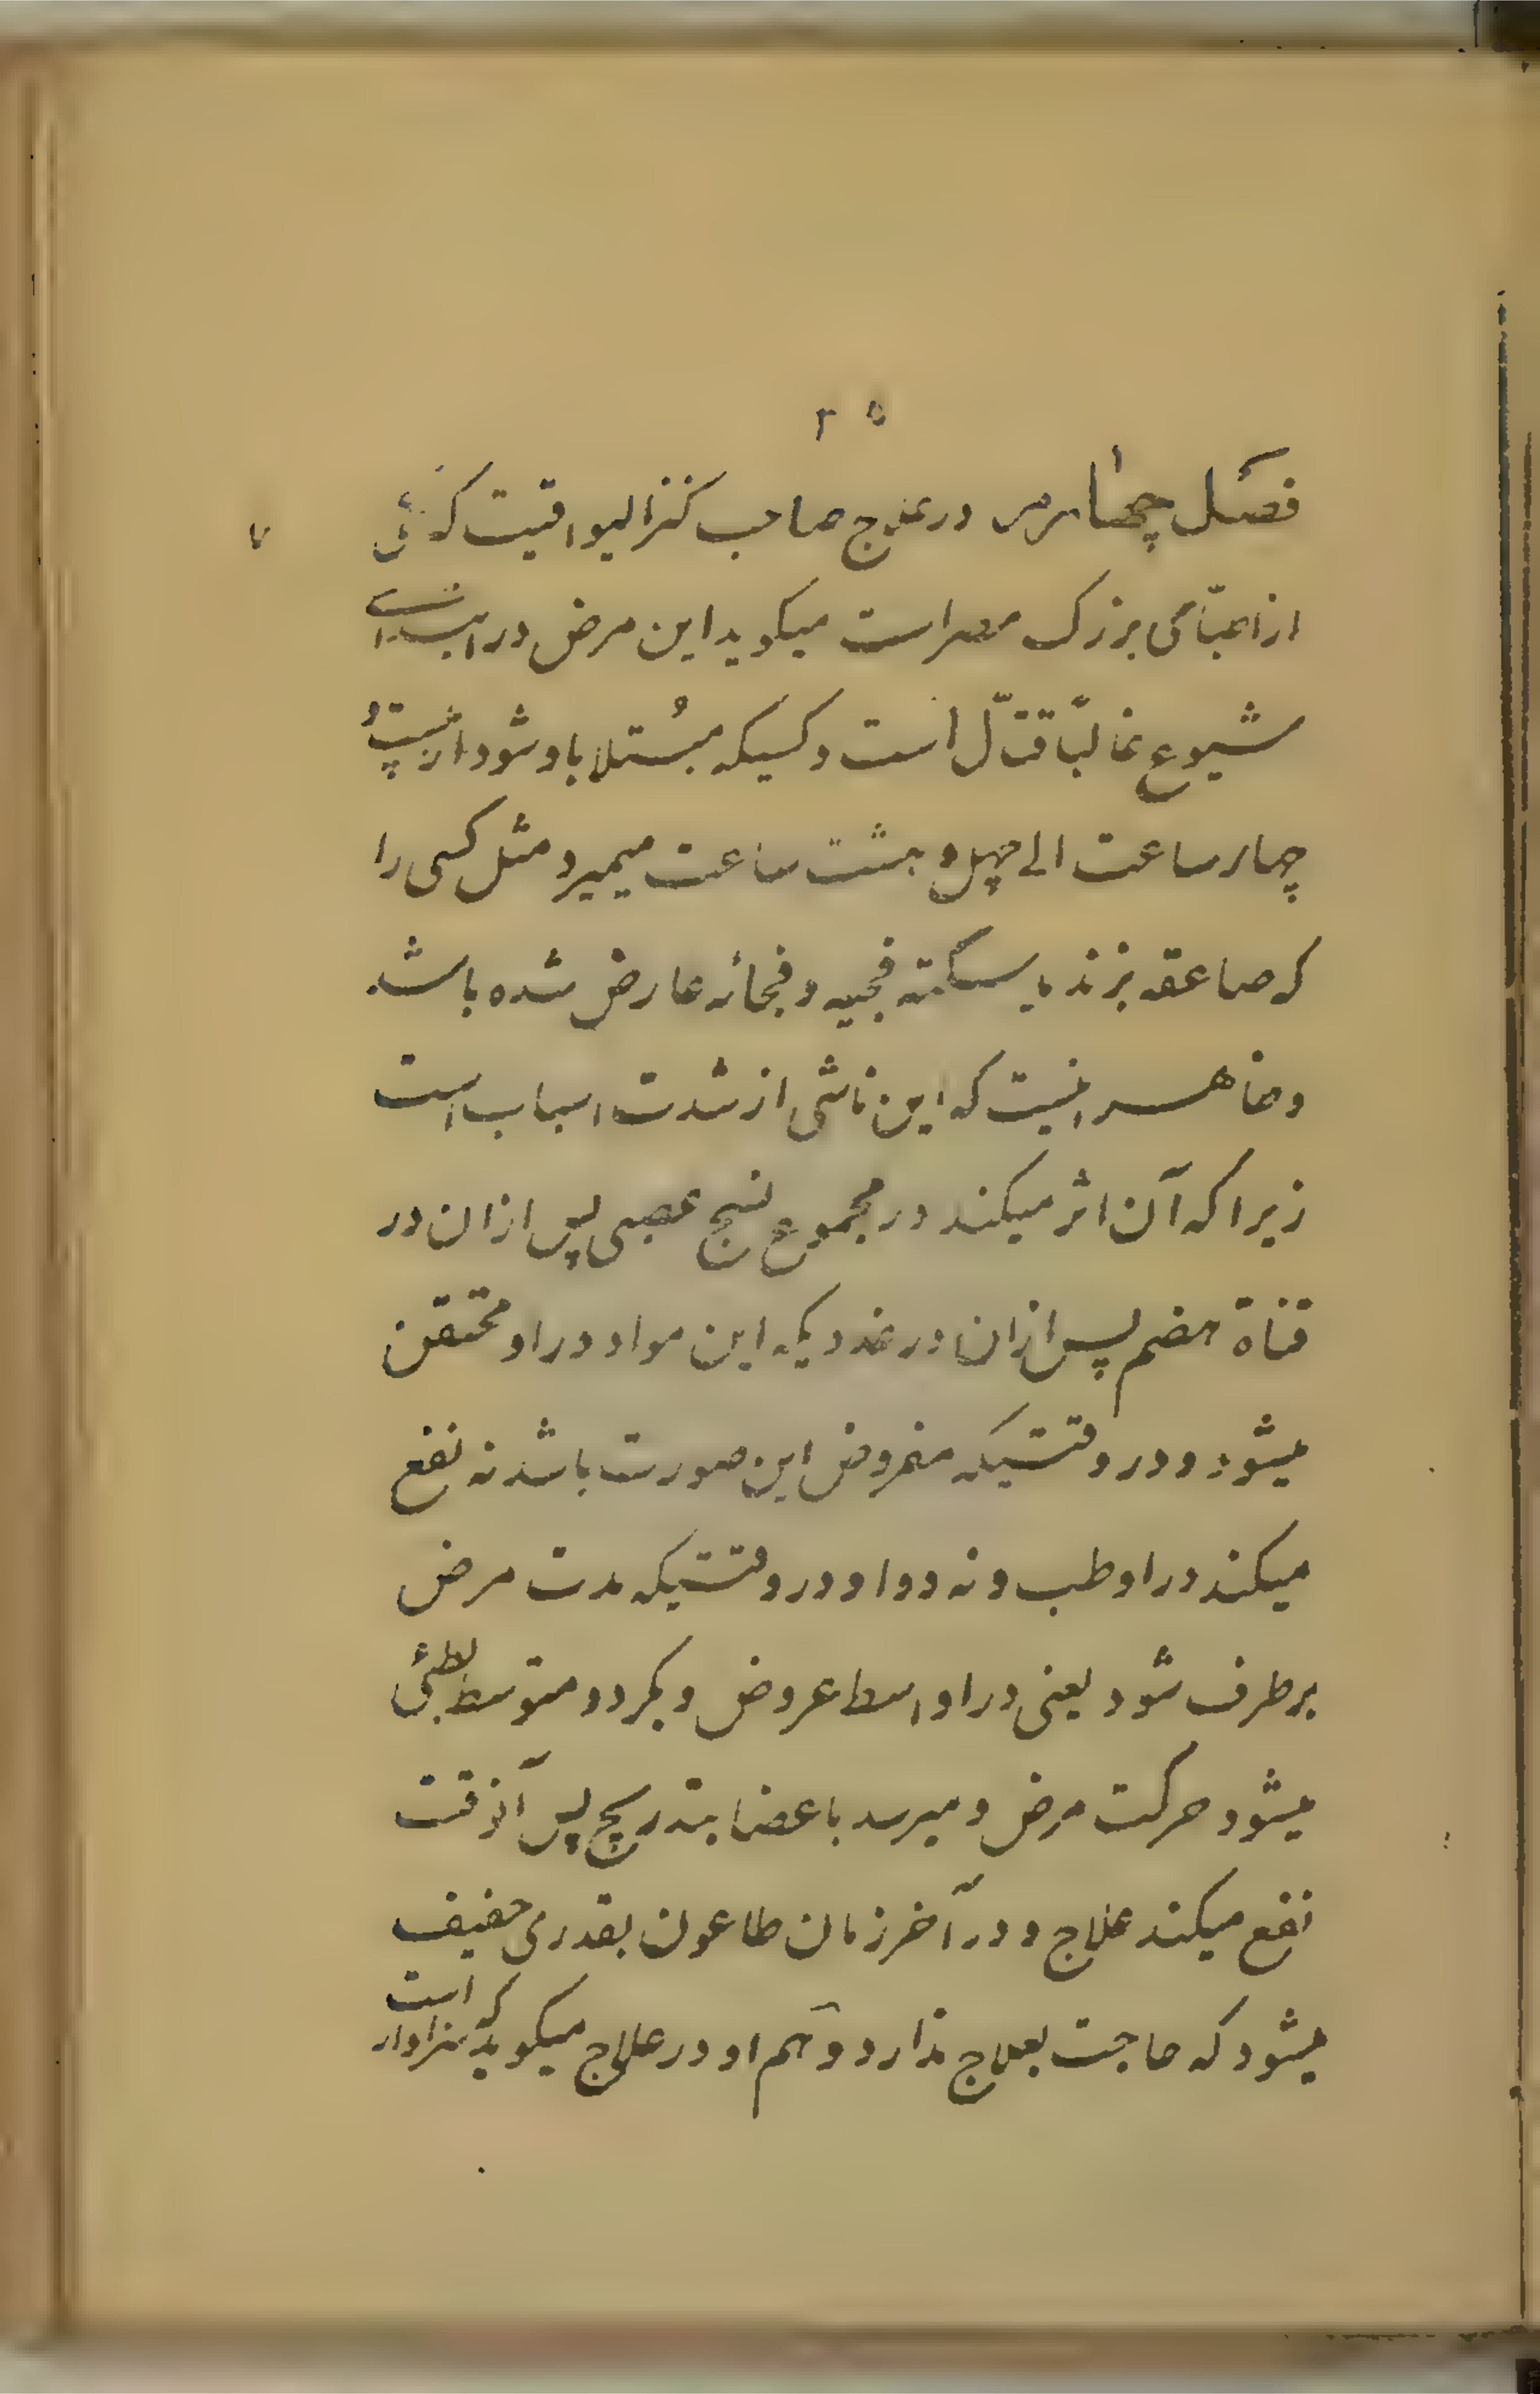 ۲۵
فصل چهارم در علاج صاحب کنز الیواقیت که
از اطبّائی بزرک مصر است میکوید این مرض در ابتدای
شیوع غالبًا قتّال است و کسیکه مبُتلا باو شود از بیست و
چهار ساعت الی چهل و هشت ساعت میمیرد مثل کسی را
که صاعقه بزند یا سکته فجیه و فجائه عارض شده باشد
و ظاهر اینست که این ناشی از شدت اسباب است
زیرا که آن اثر میکند در مجموع نسج عصبی پس ازان در
قناة هضم پس ازان در غددیکه این مواد در او محتقن
میشود و در وقتیکه مفروض این صورت باشد نه نفع
میکند در او طب و نه دوا و در وقتیکه مدت مرض
برطرف شود یعنی در اواسط عروض و بکردد متوسط بطئی
میشود حرکت مرض و میرسد باعضا بتدریج پس آنوقت
نفع میکند علاج و در آخر زمان طاعون بقدری خفیف
میشود که حاجت بعلاج ندارد و هم او در علاج میکوید که سزاوار است